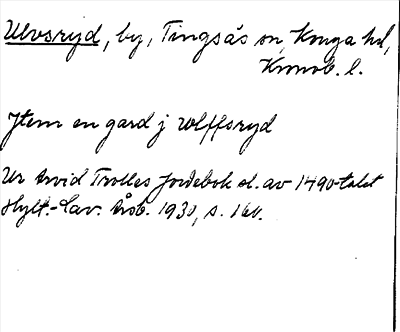 Ulvsryd, by, Tingsås sn, Konga hd,
Kronob. l.
Jtem en gard j wlffsryd
Ur Arvid Trolles Jordebok sl. av 1490-talet
Hylt.-Cav. Årsb. 1930, s. 160.